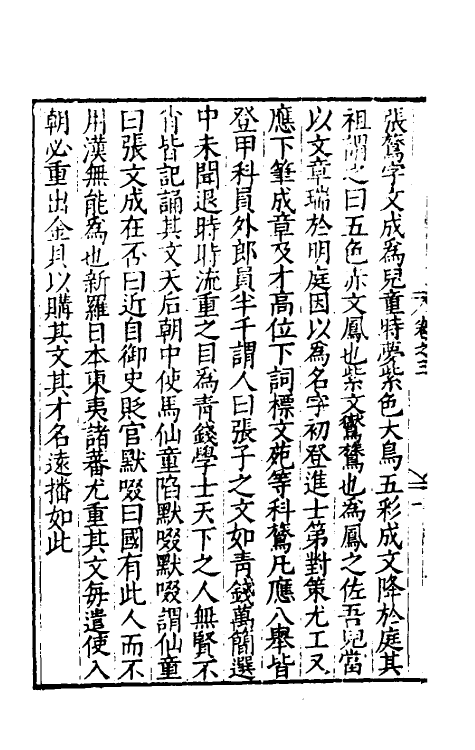 張鷟字文成為兒童時夢紫色大鳥五彩成文降於庭其
祖謂之曰五色赤文鳳也紫文鸑鷟也為鳳之佐吾兒當
以文章瑞於明庭因以為名字初登進士第對策尤工又
應下筆成章及才高位下詞標文苑等科鷟凡應八舉皆
登甲科員外郎員半千謂人曰張子之文如青錢萬簡選
中未聞退時時流重之目為青錢學士天下之人無賢不
肖皆記誦其文天后朝中使馬仙童陷默啜默啜謂仙童
曰張文成在否曰近自御史貶官默啜曰國有此人而不
用漢無能為也新羅日本東夷諸蕃尤重其文每遣使入
朝必重出金貝以購其文其才名遠播如此